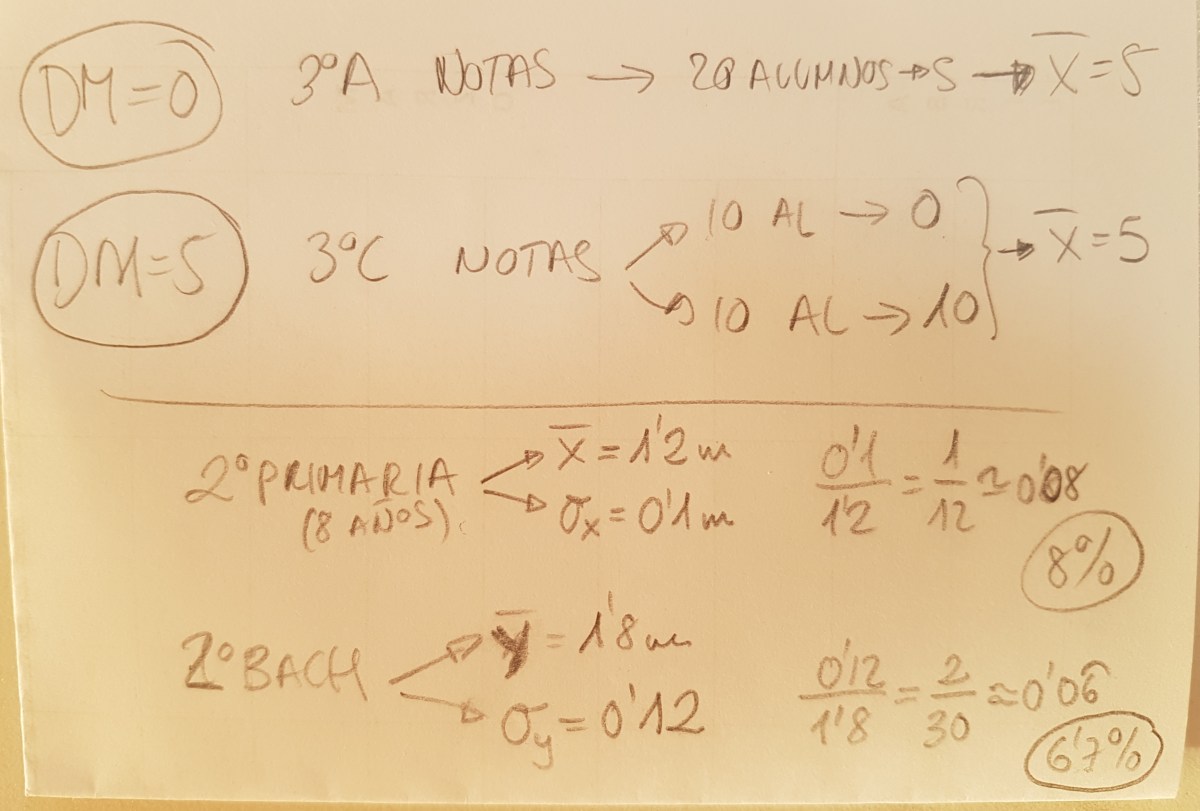 DM=0 3ºA NOTAS → 20 ALUMNOS → 5 → X̅=5
DM=5 3ºC NOTAS
10 AL → 0
10 AL → 10
→ X̅=5
2º PRIMARIA
(8 AÑOS)
X̅ = 1'2 m
σx = 0'1 m
0'1/1'2 = 1/12 ≃ 0'08
8%
2º BACH
y̅ = 1'8 m
σy = 0'12
0'12/1'8 = 2/30 ≈ 0'06
6'7%